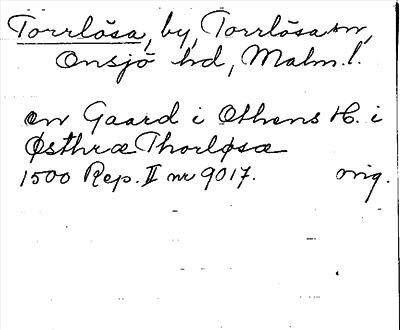 Torrlösa, by, Torrlösa sn,
Onsjö hd, Malm. l.
en Gaard i Othens H. i
Østhræ Thorløsæ
1500 Rep. II nr 9017. orig.